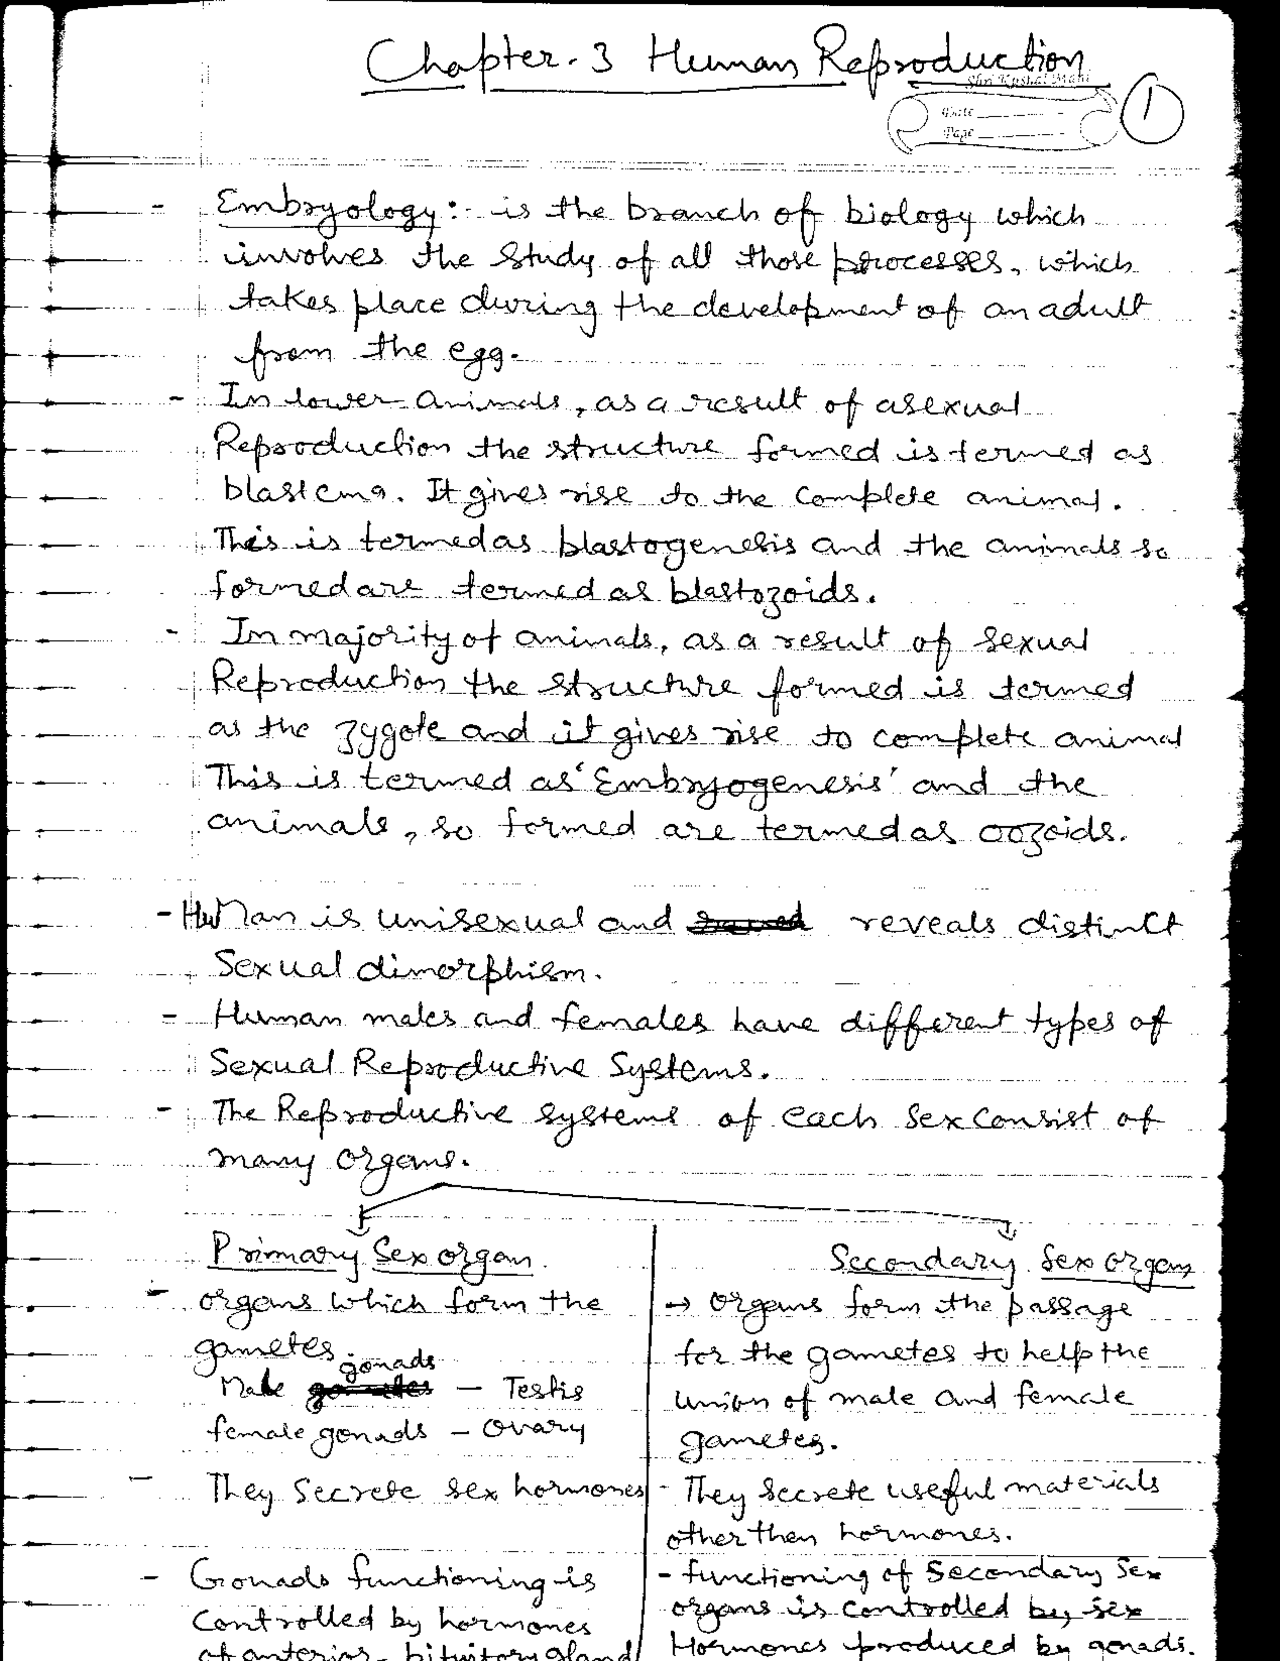 Chapter-3 Human Reproduction
Shri Kushal Mani
Date
Page
1
- Embryology:- is the branch of biology which
involves the study of all those processes, which
takes place during the development of an adult
from the egg.
- In lower animals, as a result of asexual
Reproduction the structure formed is termed as
blastema. It gives rise to the complete animal.
This is termed as blastogenesis and the animals so
formed are termed as blastozoids.
- In majority of animals, as a result of sexual
Reproduction the structure formed is termed
as the zygote and it gives rise to complete animal
This is termed as 'Embryogenesis' and the
animals, so formed are termed as oozoids.
- HuMan is unisexual and reveals distinct
Sexual dimorphism.
- Human males and females have different types of
Sexual Reproductive Systems.
- The Reproductive systems of each sex consist of
many organs.
Primary Sex organ
- organs which form the
gametes
Male gonads - Testis
female gonads - Ovary
- They Secrete sex hormones
- Gonads functioning is
controlled by hormones
of anterior pituitory gland
Secondary Sex organs
→ organs form the passage
for the gametes to help the
union of male and female
gametes.
- They secrete useful materials
other then hormones.
- functioning of Secondary Sex
organs is controlled by sex
Hormones produced by gonads.